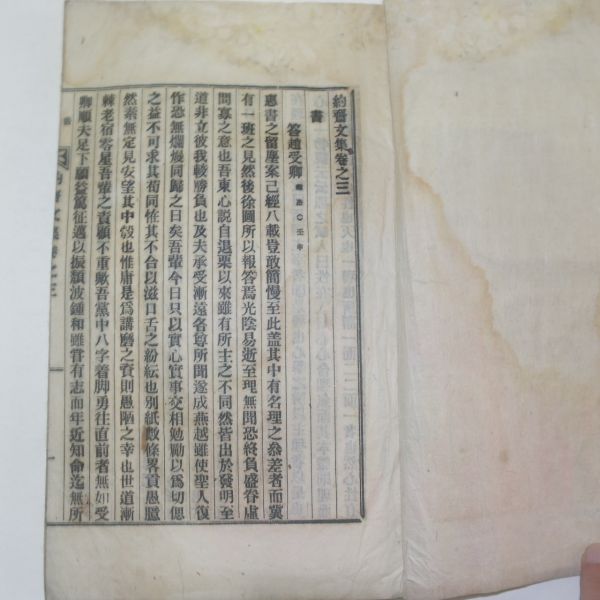 約齋文集卷之三
書
答趙受卿 鍾浩○壬申
惠書之留塵案已經八載豈敢簡慢至此盖其中有名理之叅差者而冀
有一班之見然後徐圖所以報答焉光陰易逝至理無聞恐終負盛眷虛
問寡之意也吾東心說自退栗以來雖有所主之不同然皆出於發明至
道非立彼我較勝負也及夫承受漸遠各尊所聞遂成燕越雖使聖人復
作恐無爛熳同歸之日矣吾輩今日只以實心實事交相勉勵以爲切偲
之益不可求其苟同恠其不合以滋口舌之紛紜也別紙數條畧貢愚臆
然素無定見安望其中彀也惟庸是爲講磨之資則愚陋之幸也世道漸
棘老宿零星吾輩之責顧不重歟吾黨中八字着脚勇往直前者無如受
卿願夫足下願益篤征邁以振頹波鍾和雖嘗有志而年近知命迄無所